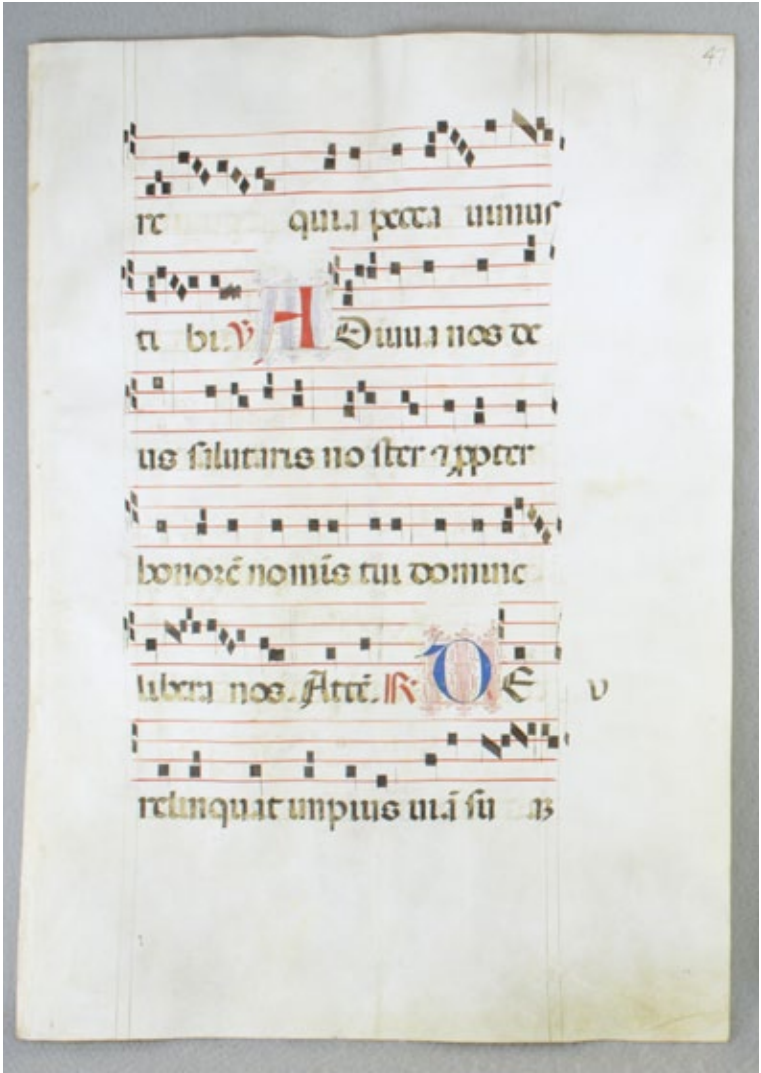 47
re quia pecca uimus
ti bi. V A Diuua nos de
us salutaris no ster ⁊ ꝓpter
honorē nomīs tui domine
libera nos. Attē. R D E
relinquat impius uiā su